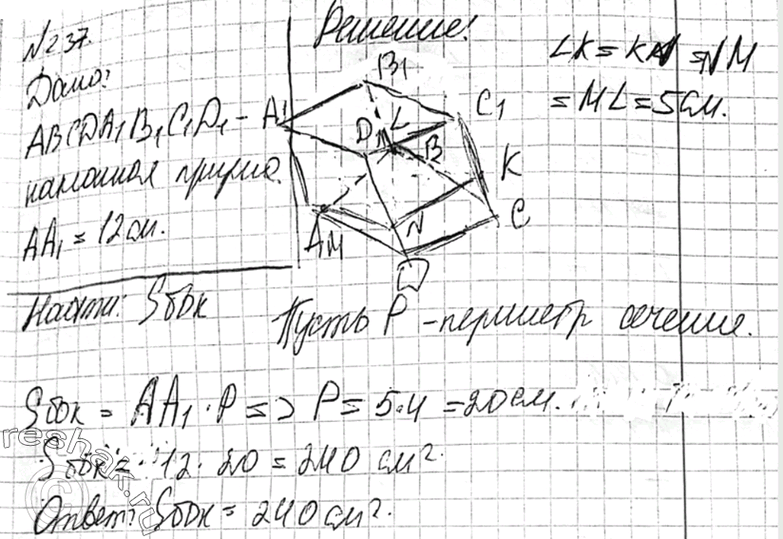 №237.
Решение:
Дано:
ABCDA₁B₁C₁D₁ –
наклонная призма.
AA₁ = 12 см.
Найти: Sбок
A₁ B₁ C₁
D₁ L B K
A M N C
D
LK = KN = NM
= ML = 5 см.
Пусть P – периметр сечение.
Sбок = AA₁ · P => P = 5·4 = 20 см.
Sбок = 12 · 20 = 240 см².
Ответ: Sбок = 240 см².
reshak.ru